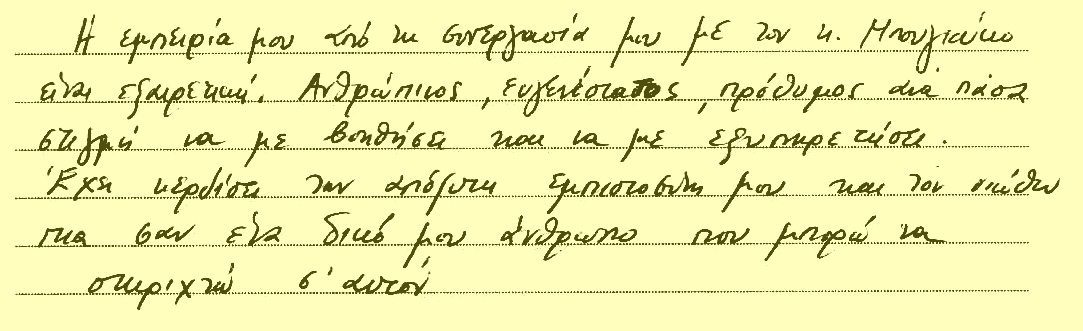 Η εμπειρία μου από τη συνεργασία μου με τον κ. Μπουγιούκο
είναι εξαιρετική. Ανθρώπινος, ευγενέστατος, πρόθυμος ανά πάσα
στιγμή να με βοηθήσει και να με εξυπηρετήσει.
Έχει κερδίσει την απόλυτη εμπιστοσύνη μου και τον νιώθω
πια σαν ένα δικό μου άνθρωπο που μπορώ να
στηριχτώ σ' αυτόν